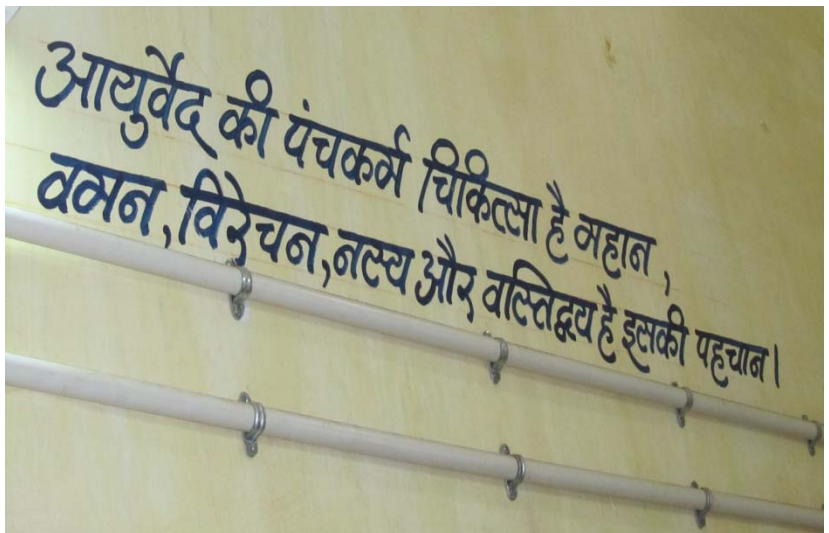 आयुर्वेद की पंचकर्म चिकित्सा है महान,
वमन, विरेचन, नस्य और वस्तिद्वय है इसकी पहचान।